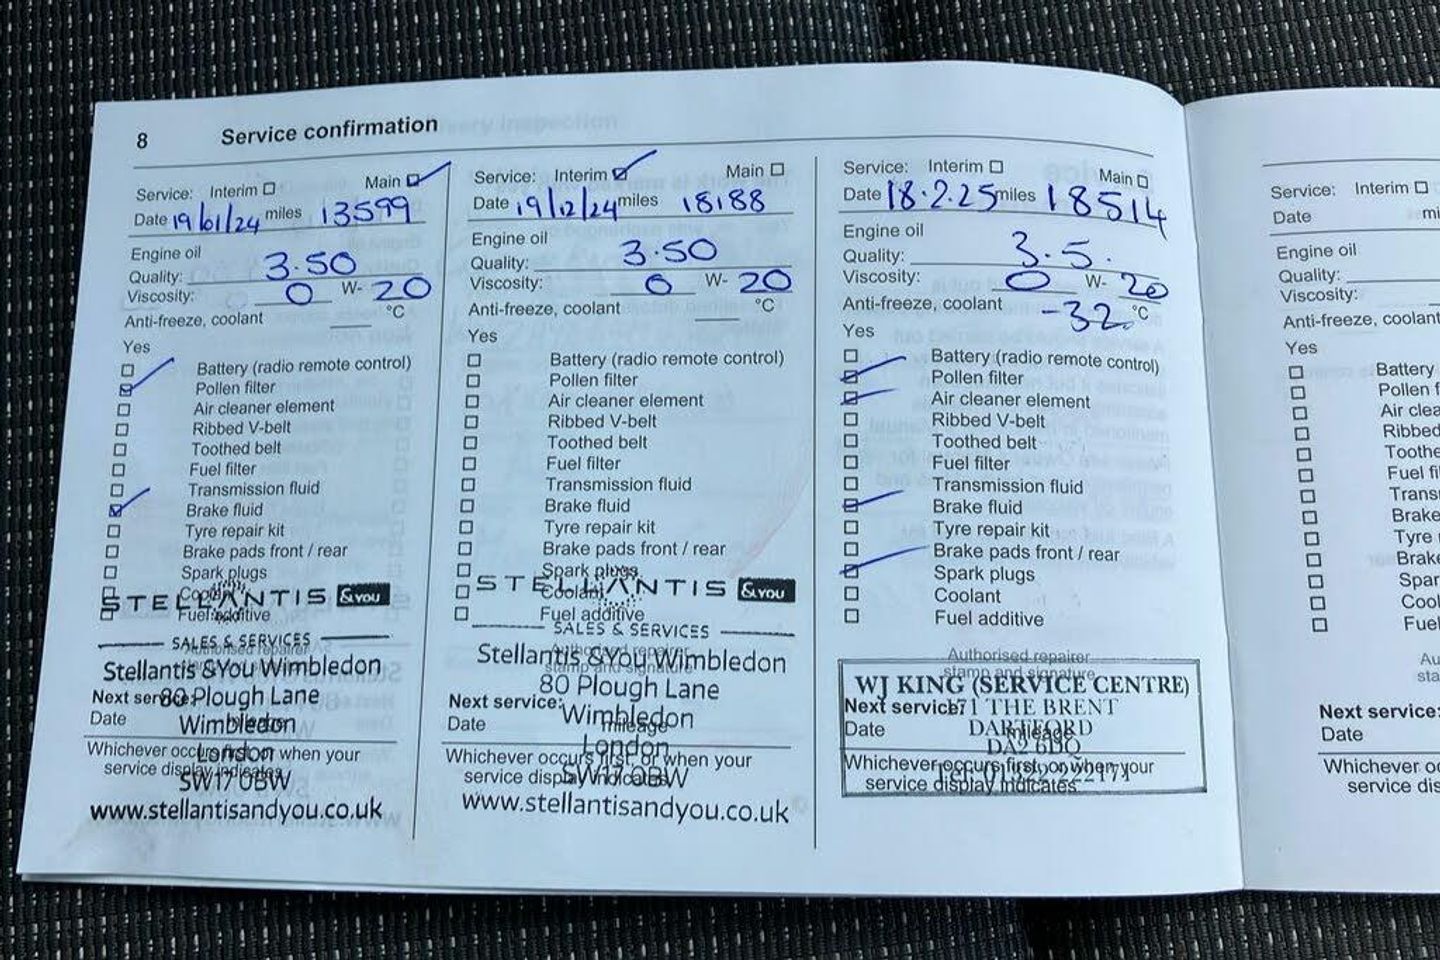 8 Service confirmation
Service: Interim Main
Date 19/01/24 miles 13599
Engine oil
Quality: 3.50
Viscosity: 0 W- 20
Anti-freeze, coolant °C
Yes
Battery (radio remote control)
Pollen filter
Air cleaner element
Ribbed V-belt
Toothed belt
Fuel filter
Transmission fluid
Brake fluid
Tyre repair kit
Brake pads front / rear
Spark plugs
Coolant
Fuel additive
STELLANTIS &YOU
SALES & SERVICES
Authorised repairer
Stellantis &You Wimbledon
80 Plough Lane
Wimbledon
London
SW17 0BW
www.stellantisandyou.co.uk
Next service:
Date mileage
Whichever occurs first, or when your
service display indicates
Service: Interim Main
Date 19/12/24 miles 18188
Engine oil
Quality: 3.50
Viscosity: 0 W- 20
Anti-freeze, coolant °C
Yes
Battery (radio remote control)
Pollen filter
Air cleaner element
Ribbed V-belt
Toothed belt
Fuel filter
Transmission fluid
Brake fluid
Tyre repair kit
Brake pads front / rear
Spark plugs
Coolant
Fuel additive
STELLANTIS &YOU
SALES & SERVICES
Authorised repairer
stamp and signature
Stellantis &You Wimbledon
80 Plough Lane
Wimbledon
London
SW17 0BW
www.stellantisandyou.co.uk
Next service:
Date mileage
Whichever occurs first, or when your
service display indicates
Service: Interim Main
Date 18.2.25 miles 18514
Engine oil
Quality: 3.5.
Viscosity: 0 W- 20
Anti-freeze, coolant -32 °C
Yes
Battery (radio remote control)
Pollen filter
Air cleaner element
Ribbed V-belt
Toothed belt
Fuel filter
Transmission fluid
Brake fluid
Tyre repair kit
Brake pads front / rear
Spark plugs
Coolant
Fuel additive
Authorised repairer
stamp and signature
WJ KING (SERVICE CENTRE)
171 THE BRENT
DARTFORD
DA2 6DQ
Tel: 01322 222171
Next service:
Date mileage
Whichever occurs first, or when your
service display indicates
Service: Interim
Date mi
Engine oil
Quality:
Viscosity:
Anti-freeze, coolant
Yes
Battery
Pollen f
Air clea
Ribbed
Toothe
Fuel fi
Trans
Brake
Tyre
Brake
Spar
Cool
Fuel
Au
sta
Next service:
Date
Whichever oc
service dis